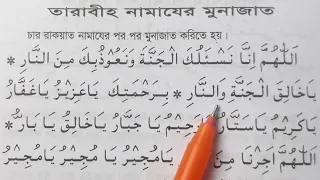 তারাবীহ নামাযের মুনাজাত
চার রাকয়াত নামাযের পর পর মুনাজাত করিতে হয়।
اَللّٰهُمَّ اِنَّا نَسْئَلُكَ الْجَنَّةَ وَنَعُوْذُبِكَ مِنَ النَّارِ *
يَاخَالِقَ الْجَنَّةِ وَالنَّارِ * بِرَحْمَتِكَ يَاعَزِيْزُ يَاغَفَّارُ
يَاكَرِيْمُ يَاسَتَّارُ يَارَحِيْمُ يَا جَبَّارُ يَاخَالِقُ يَا بَارُّ *
اَللّٰهُمَّ اَجِرْنَا مِنَ يَامُجِيْرُ يَا مُجِيْرُ يَامُجِيْرُ